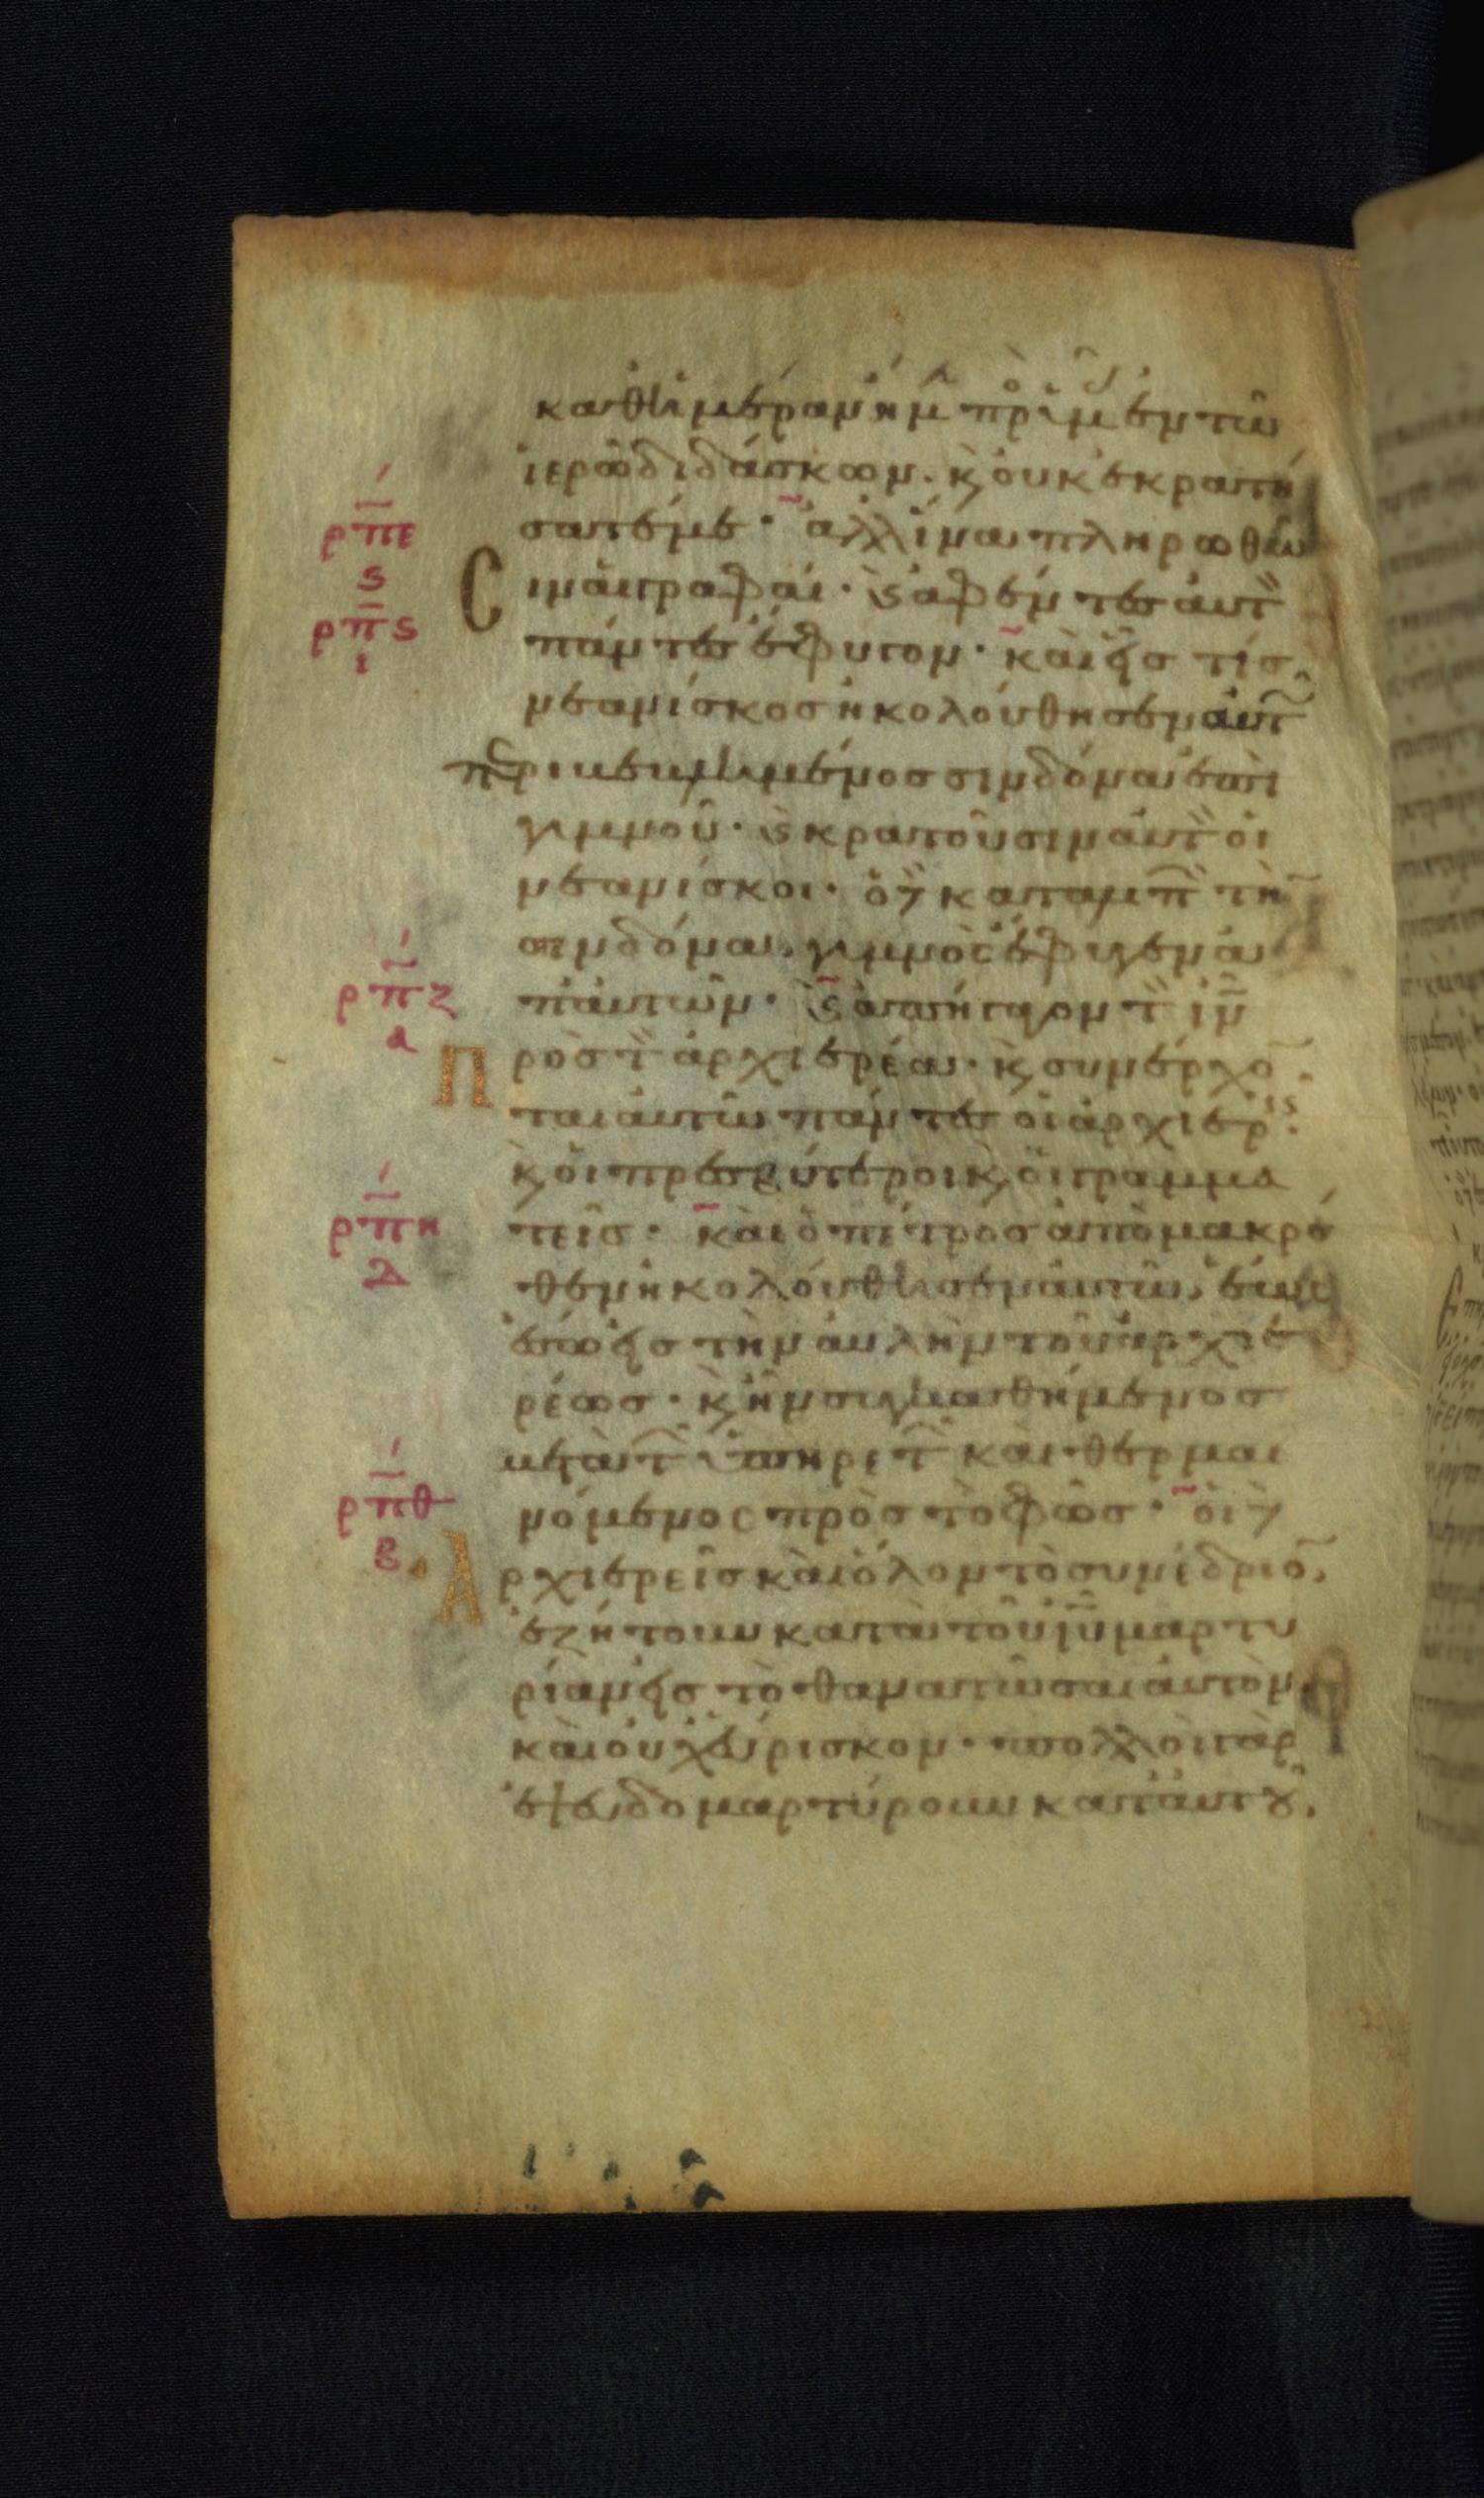 καθημέραν ἤμ πρ ὑμ ἐν τῶ
ἱερῶ διδάσκων. κ̀ οὐκ ἐκρατή
σατέ με· ἀλλ ἵνα πληρωθῶ
ρπε
ς
σιν αἱ γραφαί· κ̀ ἀφέντες αὐτ
ρπς
ι
πάντες ἔφυγον· καὶ εἷς τίς
νεανίσκος ἠκολούθησεν αὐτ
περιβεβλημένος σινδόνα ἐπὶ
γυμνοῦ· κ̀ κρατοῦσιν αὐτ οἱ
νεανίσκοι· ὁ δ καταλιπ τὴ
σινδόνα, γυμνὸς ἔφυγεν ἀ
ρπζ
α
π' αὐτῶν· κ̀ ἀπήγαγον τ ιν
πρὸς τ ἀρχιερέα· κ̀ συνέρχο
ται αὐτῶ πάντες οἱ ἀρχιερις
κ̀ οἱ πρεσβύτεροι κ̀ οἱ γραμμα
ρπη
δ
τεῖς· καὶ ὁ πέτρος ἀπὸ μακρό
θεν ἠκολούθησεν αὐτῶ, ἕως
ἔσω εἰς τὴν αὐλὴν τοῦ ἀρχιε
ρέως· κ̀ ἦν συγκαθήμενος
μετὰ τ ὑπηρετ καὶ θερμαι
ρπθ
β
νόμενος πρὸς τὸ φῶς· οἱ δ
ἀρχιερεῖς καὶ ὅλον τὸ συνέδριο
ἐζήτουν κατὰ τοῦ ιυ μαρτυ
ρίαν εἰς τὸ θανατῶσαι αὐτὸν
καὶ οὐχ εὕρισκον· πολλοὶ γὰρ
ἐψευδομαρτύρουν κατ' αὐτοῦ,